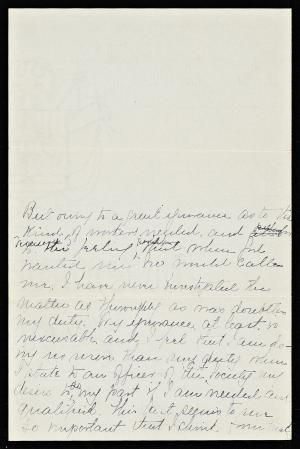 But owing to a great ignorance as to the
kind of workers needed, and
to the feeling that when God
wanted me he would call
me. I have never investigated the
matter as thoroughly as was doubtless
my duty. My ignorance at least is
inexcusable and I feel that I am do-
ing no more than my duty when
I state to an officer of the Society my
desire to do my part if I am needed and
qualified. This last seems to me
so important that I